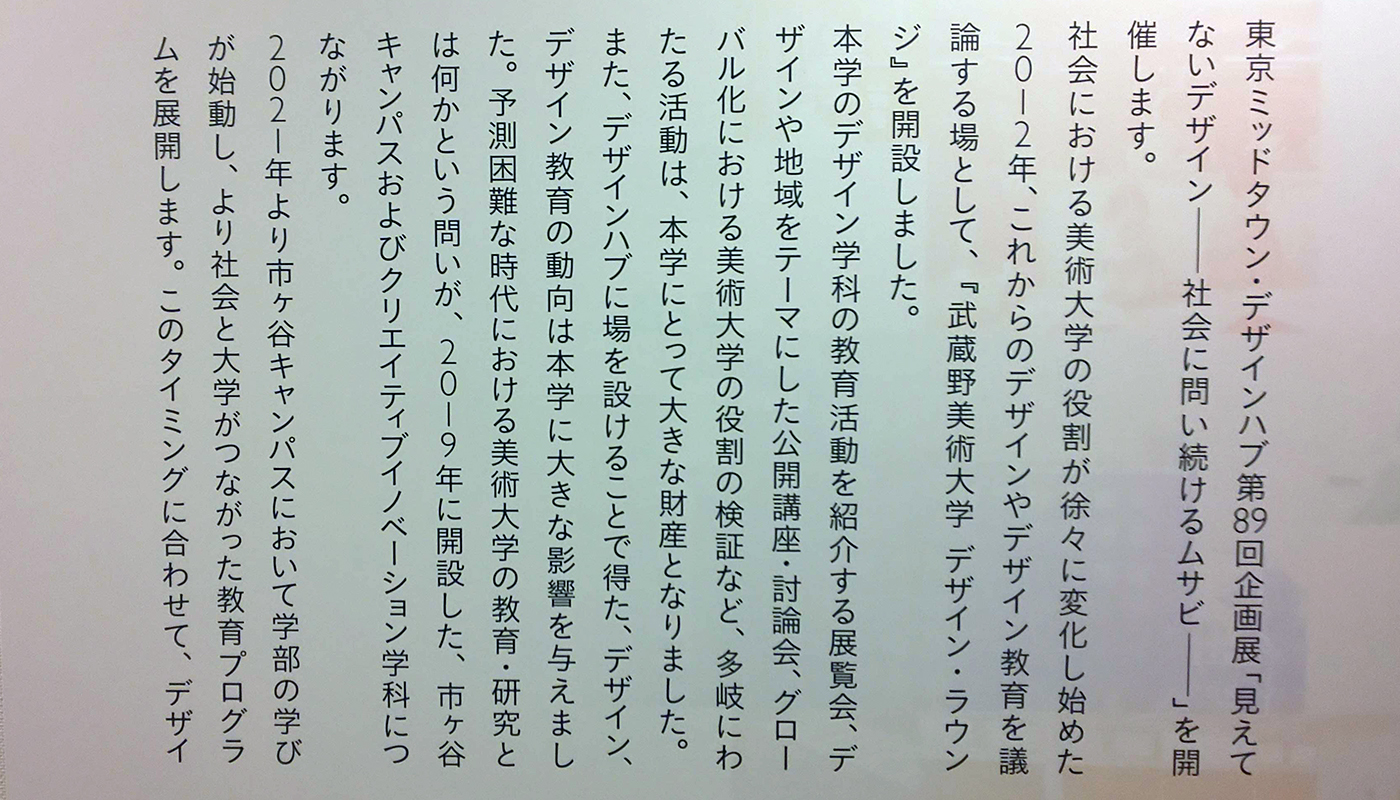 東京ミッドタウン・デザインハブ第89回企画展「見えて
ないデザイン——社会に問い続けるムサビ——」を開
催します。
社会における美術大学の役割が徐々に変化し始めた
2012年、これからのデザインやデザイン教育を議
論する場として、『武蔵野美術大学 デザイン・ラウン
ジ』を開設しました。
本学のデザイン学科の教育活動を紹介する展覧会、デ
ザインや地域をテーマにした公開講座・討論会、グロー
バル化における美術大学の役割の検証など、多岐にわ
たる活動は、本学にとって大きな財産となりました。
また、デザインハブに場を設けることで得た、デザイン、
デザイン教育の動向は本学に大きな影響を与えまし
た。予測困難な時代における美術大学の教育・研究と
は何かという問いが、2019年に開設した、市ヶ谷
キャンパスおよびクリエイティブイノベーション学科につ
ながります。
2021年より市ヶ谷キャンパスにおいて学部の学び
が始動し、より社会と大学がつながった教育プログラ
ムを展開します。このタイミングに合わせて、デザイ